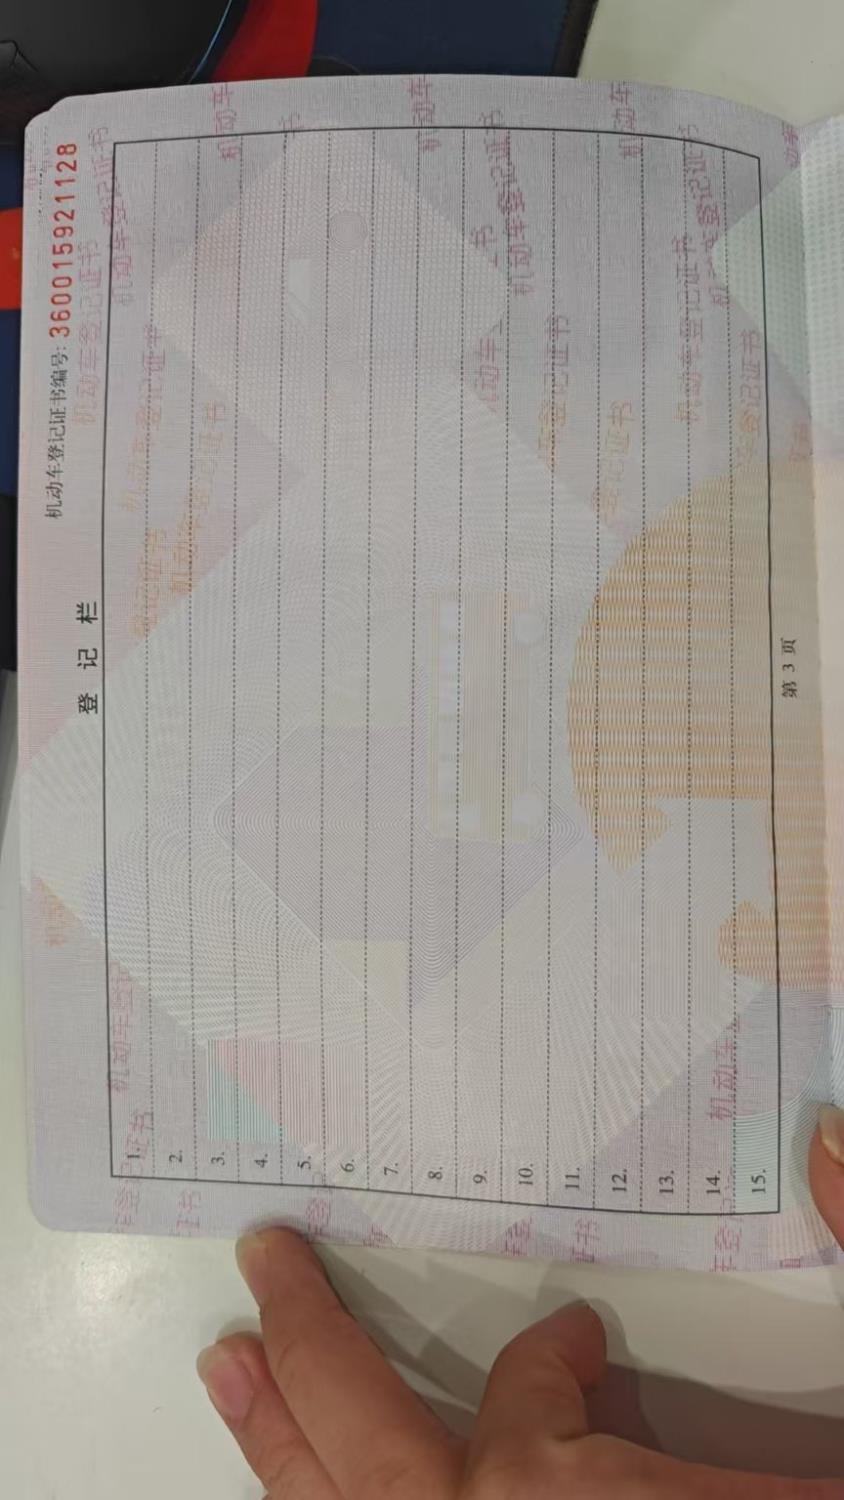 机动车登记证书编号: 360015921128
登 记 栏
1.
2.
3.
4.
5.
6.
7.
8.
9.
10.
11.
12.
13.
14.
15.
第 3 页